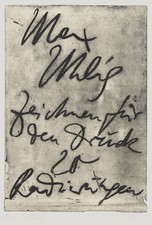 Max
Uhlig
Zeichnen für
den Druck
20
Radierungen